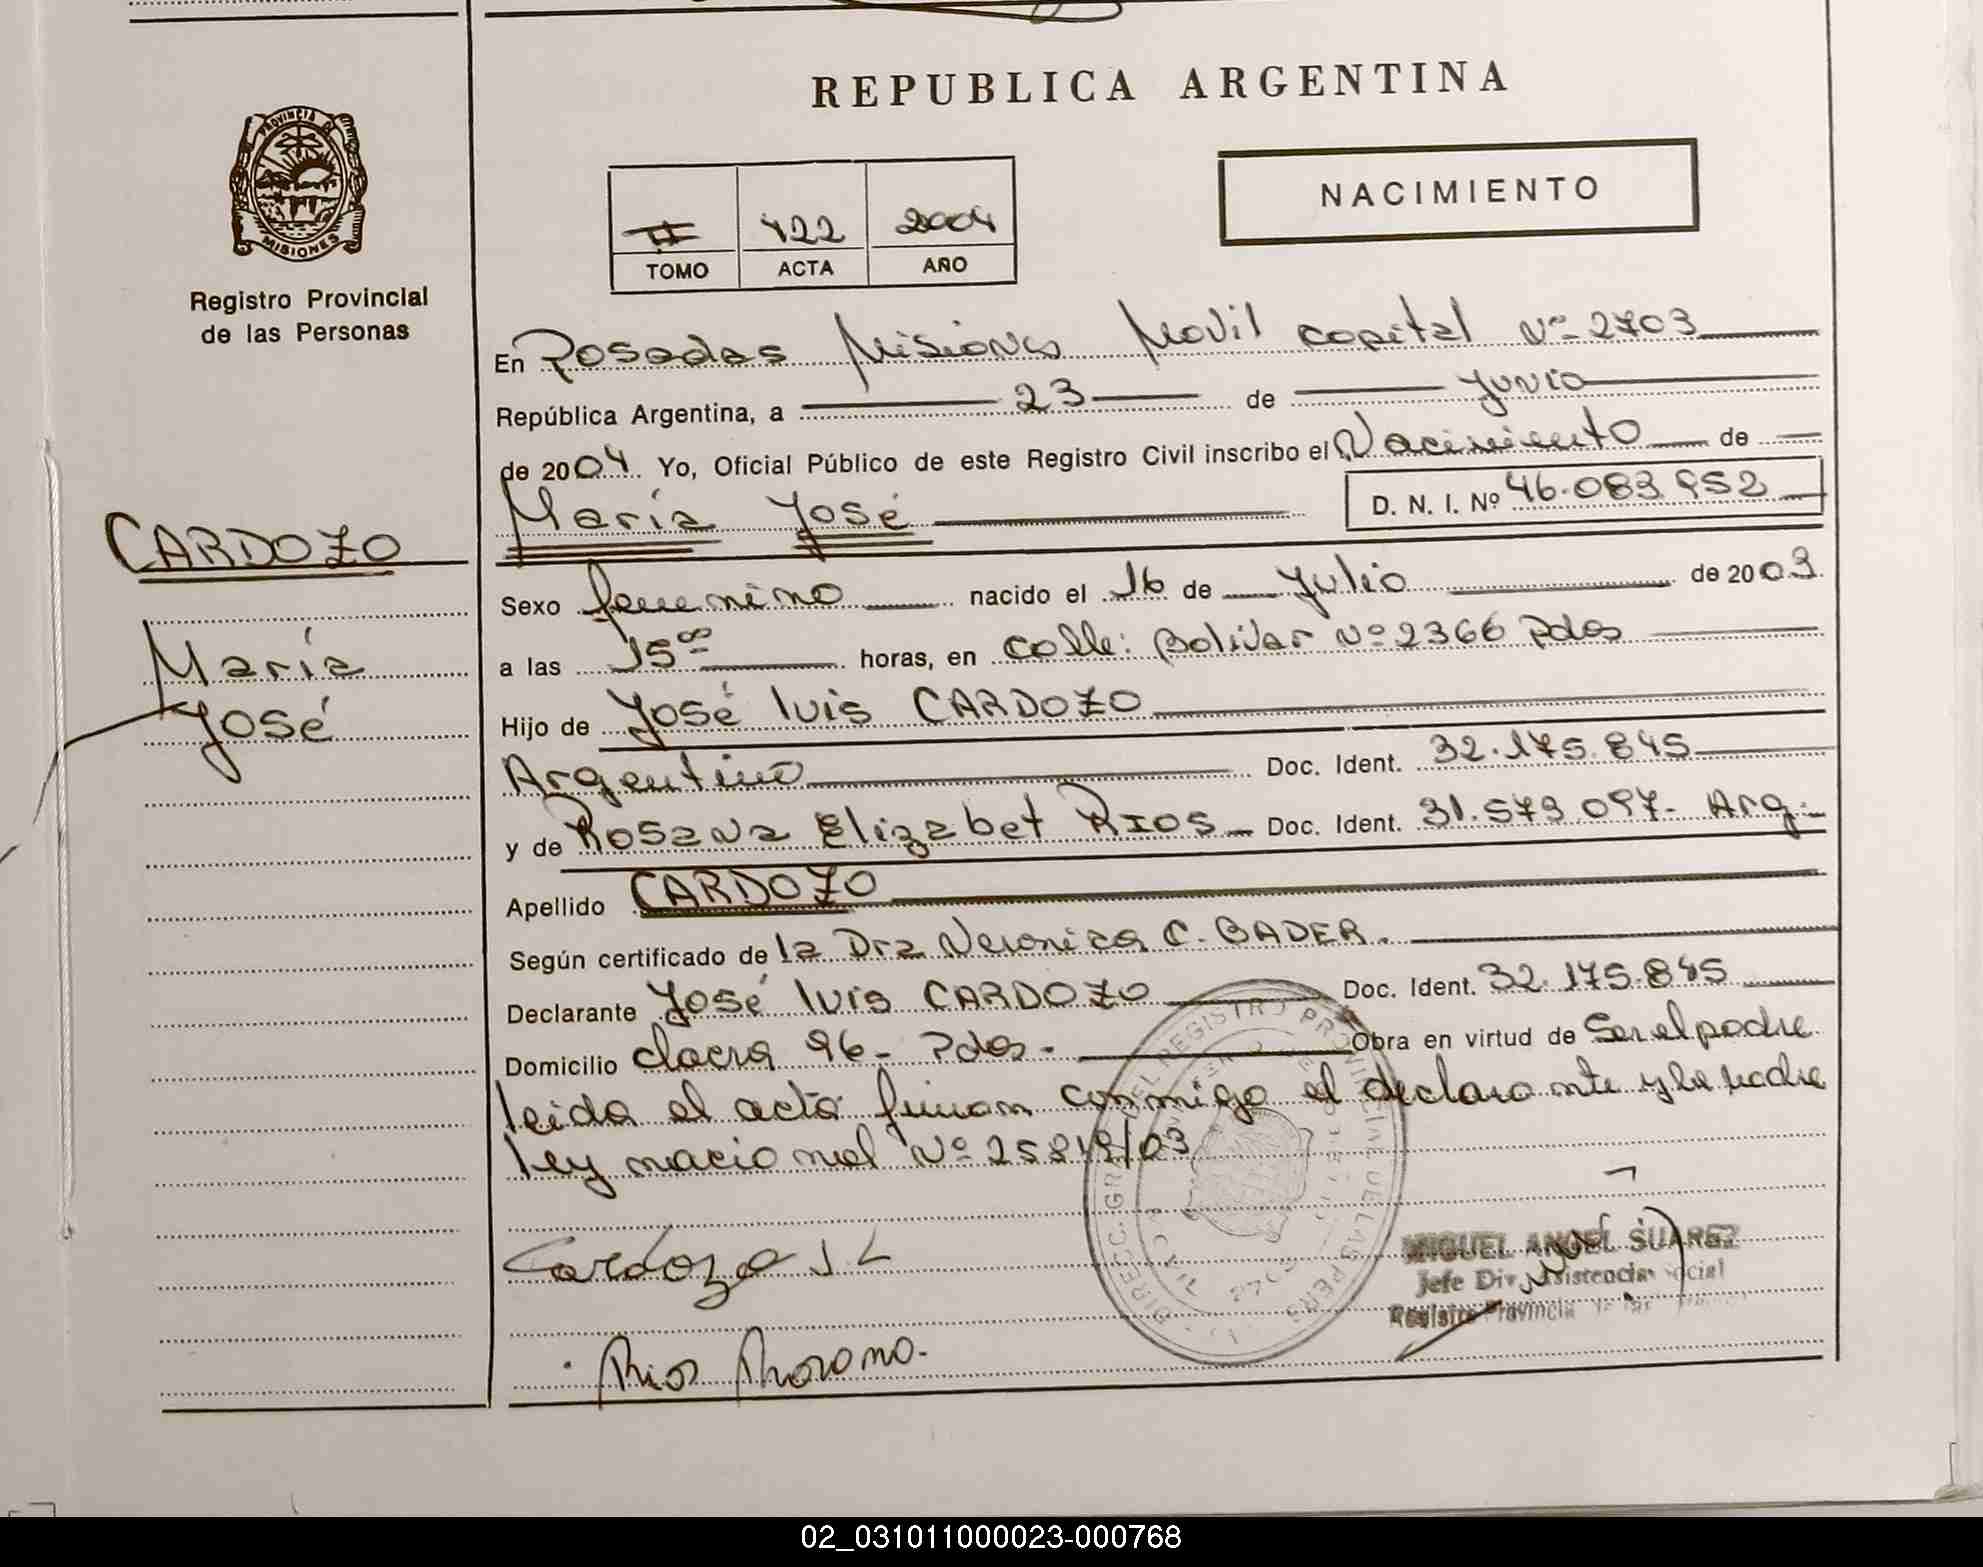 REPUBLICA ARGENTINA
PROVINCIA DE
MISIONES
Registro Provincial
de las Personas
NACIMIENTO
II 422 2004
TOMO ACTA AÑO
En Posadas Misiones Movil capital Nº 2703
República Argentina, a 23 de Junio
de 2004 Yo, Oficial Público de este Registro Civil inscribo el Nacimiento de
María José D. N. I. Nº 46.083.952
CARDOZO
María
José
Sexo femenino nacido el 16 de Julio de 2003
a las 15 00 horas, en calle: Bolivar Nº 2366 Pdas
Hijo de José luis CARDOZO
Argentino Doc. Ident. 32.175.845
y de Rosana Elizabet RIOS Doc. Ident. 31.573.097- Arg.
Apellido CARDOZO
Según certificado de la Dra Veronica C. BADER.
Declarante José luis CARDOZO Doc. Ident. 32.175.845
Domicilio chacra 96- Pdas. Obra en virtud de Ser el padre
leida el acta firman conmigo el declarante y la madre
ley nacional Nº 25819/03
Cardozo J L
MIGUEL ANGEL SUAREZ
Jefe Div. Asistencia Social
Registro Provincial de las
Rios Rosana.
02_031011000023-000768